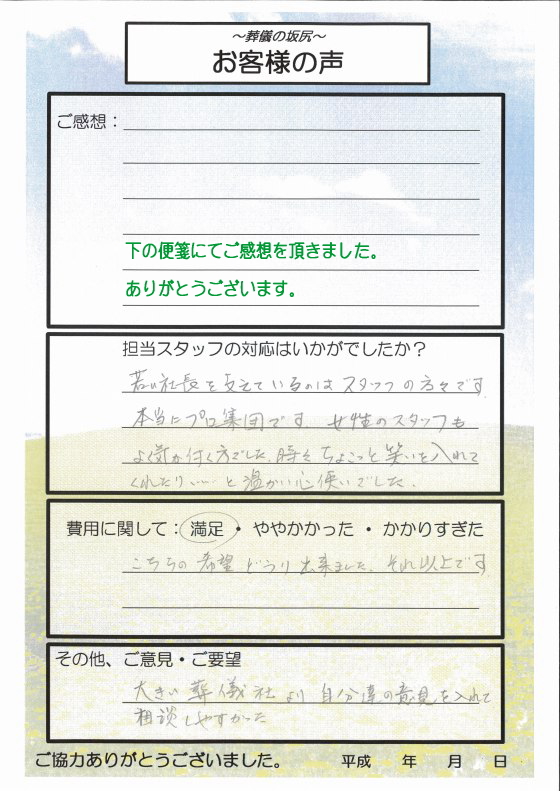 ～葬儀の坂尻～
お客様の声
ご感想：
下の便箋にてご感想を頂きました。
ありがとうございます。
担当スタッフの対応はいかがでしたか？
若い社長を支えているのはスタッフの方々です
本当にプロ集団です 女性のスタッフも
よく気が付く方でした。時々ちょこっと笑いを入れて
くれたり……と温かい心使いでした。
費用に関して：満足・ややかかった・かかりすぎた
こちらの希望どうり出来ました。それ以上です
その他、ご意見・ご要望
大きい葬儀社より自分達の意見を入れて
相談しやすかった
ご協力ありがとうございました。 平成 年 月 日